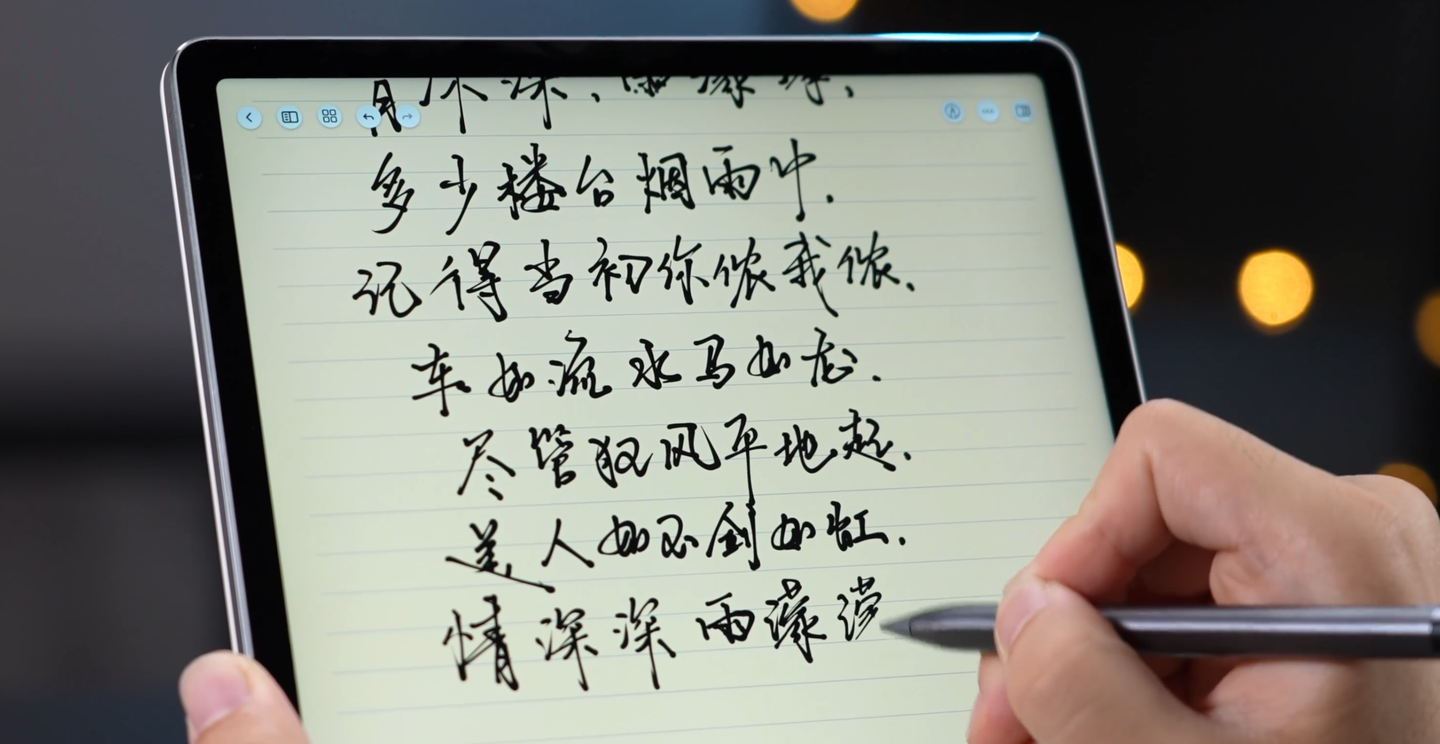 情深深、雨濛濛，
多少楼台烟雨中.
记得当初你侬我侬、
车如流水马如龙.
尽管狂风平地起、
美人如玉剑如虹.
情深深雨濛濛